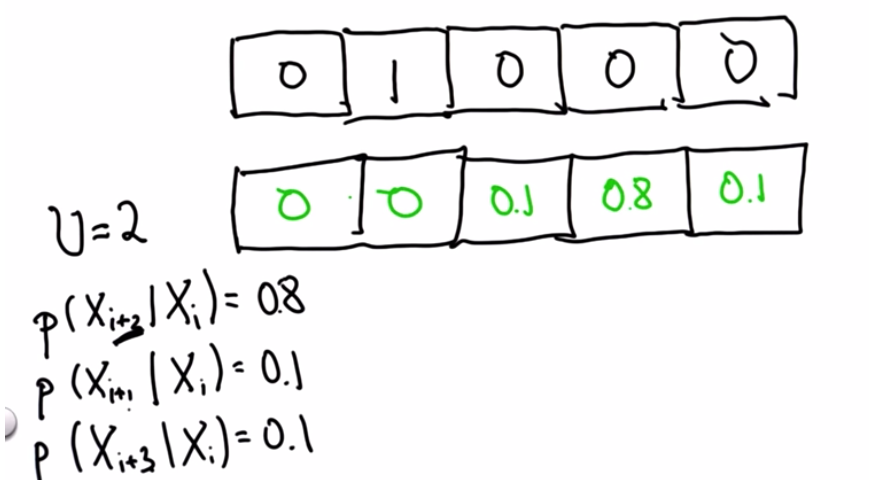 0 1 0 0 0
0 0 0.1 0.8 0.1
U=2
p(X_{i+2}|X_i)=0.8
p(X_{i+1}|X_i)=0.1
p(X_{i+3}|X_i)=0.1